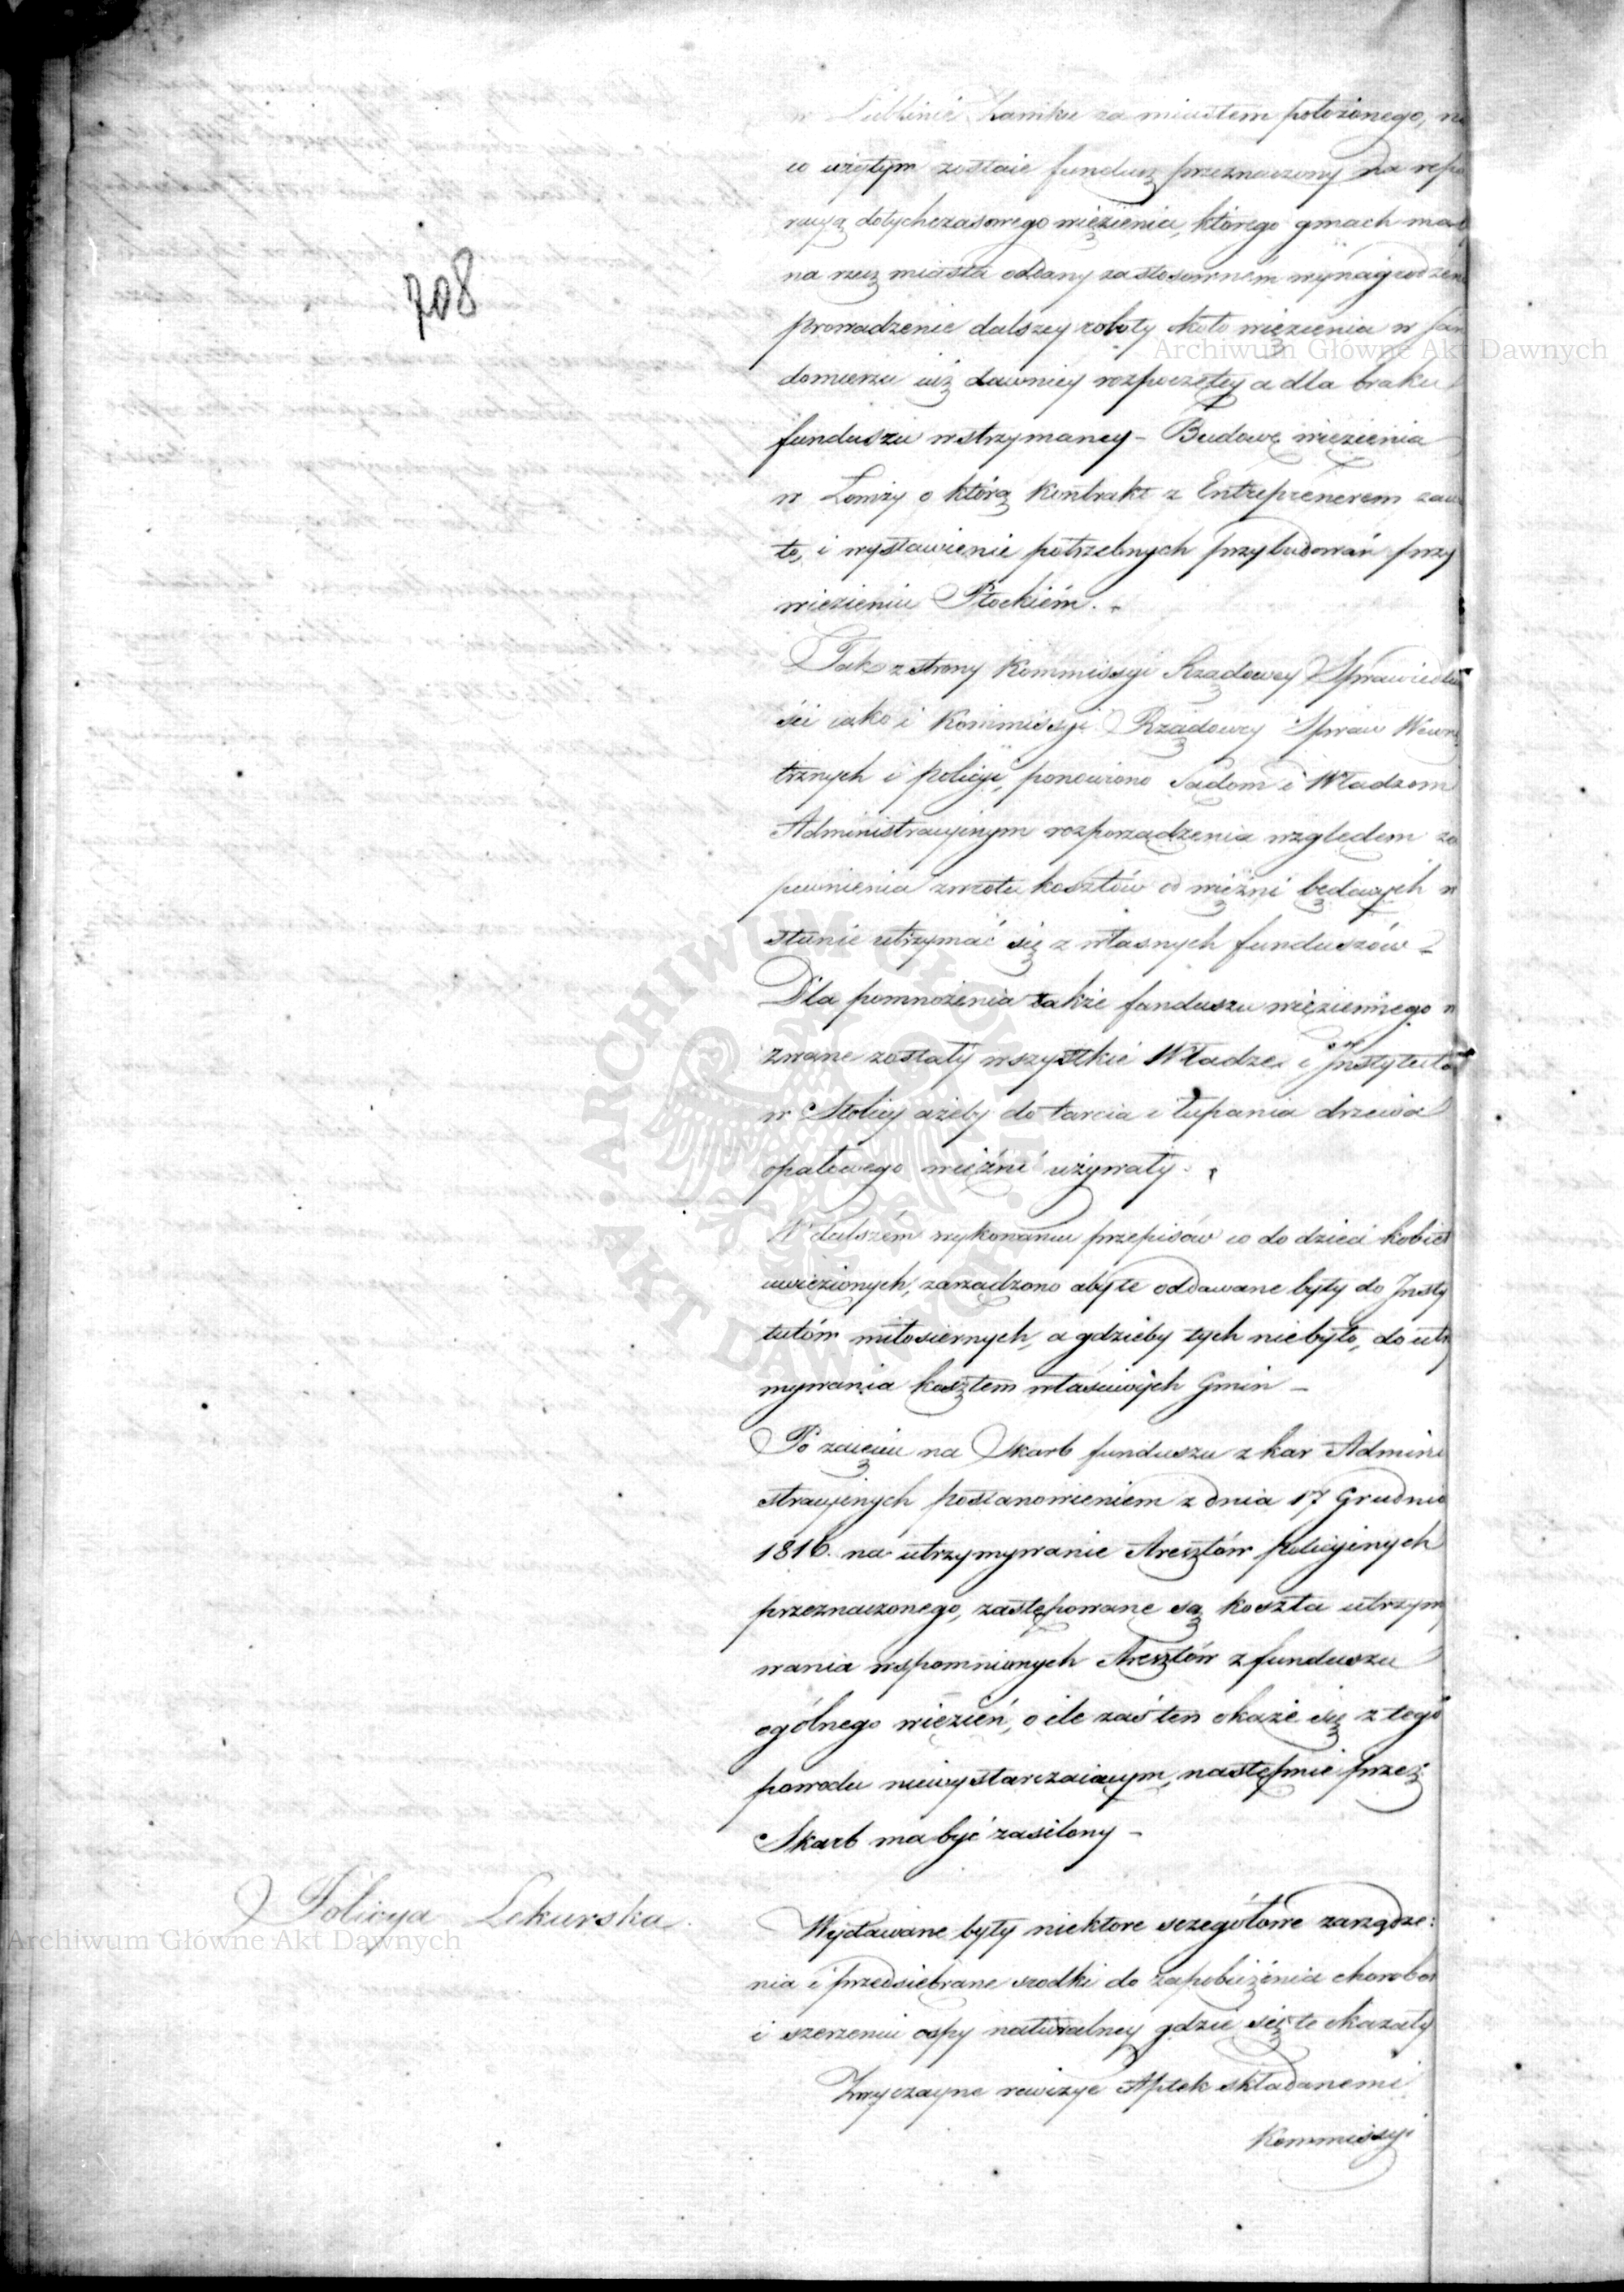 708
w Lublinie Zamku za miastem położonego, na
co użytym zostaie fundusz przeznaczony na repa
racyą dotychczasowego więzienia, którego gmach ma
na rzecz miasta oddany za stosownem wynagrodzen
prowadzenie dalszey roboty około więzienia w San
domierzu iuż dawniey rozpoczętey a dla braku
funduszu wstrzymaney – Budowę więzienia
w Łomży o którą Kontrakt z Entreprenerem zawar
to, i wystawienie potrzebnych przybudowań przy
więzieniu Płockiém. –
Tak ze strony Kommissyi Rządowey Sprawiedliwo
ści iako i Kommissyi Rządowey Spraw Wewnę
trznych i Policyi, ponowiono Sądom i Władzom
Administracyinym rozporządzenia względem za
pewnienia zwrotu kosztów od więźni będących w
stanie utrzymać się z własnych funduszów –
Dla pomnożenia także funduszu więziennego w
zwane zostały wszystkie Władze i Instytuta
w Stolicy ażeby do tarcia i łupania drzewa
opałowego więźni używały. –
W dalszém wykonaniu przepisów co do dzieci kobiet
uwięzionych, zarządzono aby te oddawane były do Insty
tutów miłosiernych, a gdzieby tych niebyło, do utrzy
mywania kosztem właściwych Gmin –
Po zaięciu na Skarb funduszu z kar Admini
stracyinych postanowieniem z dnia 17 Grudnia
1816. na utrzymywanie Aresztów policyinych
przeznaczonego, zastępowane są koszta utrzym
wania wspomnionych Aresztów z funduszu
ogólnego więzień, o ile zaś ten okaże się z tego
powodu niewystarczaiącym, następnie przez
Skarb ma być zasilony –
Policya Lekarska.
Wydawane były niektore sczegółowe zarządze:
nia i przedsiębrane srodki do zapobieżenia chorobom
i szerzeniu ospy naturalney gdzie się te okazały
Zwyczayne rewizye Aptek składanemi
Kommissyi
Archiwum Główne Akt Dawnych
Archiwum Główne Akt Dawnych
ARCHIWUM GŁÓWNE AKT DAWNYCH